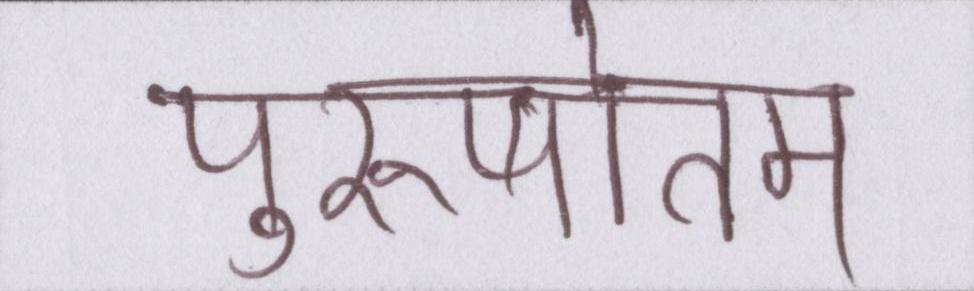 पुरूषोतम